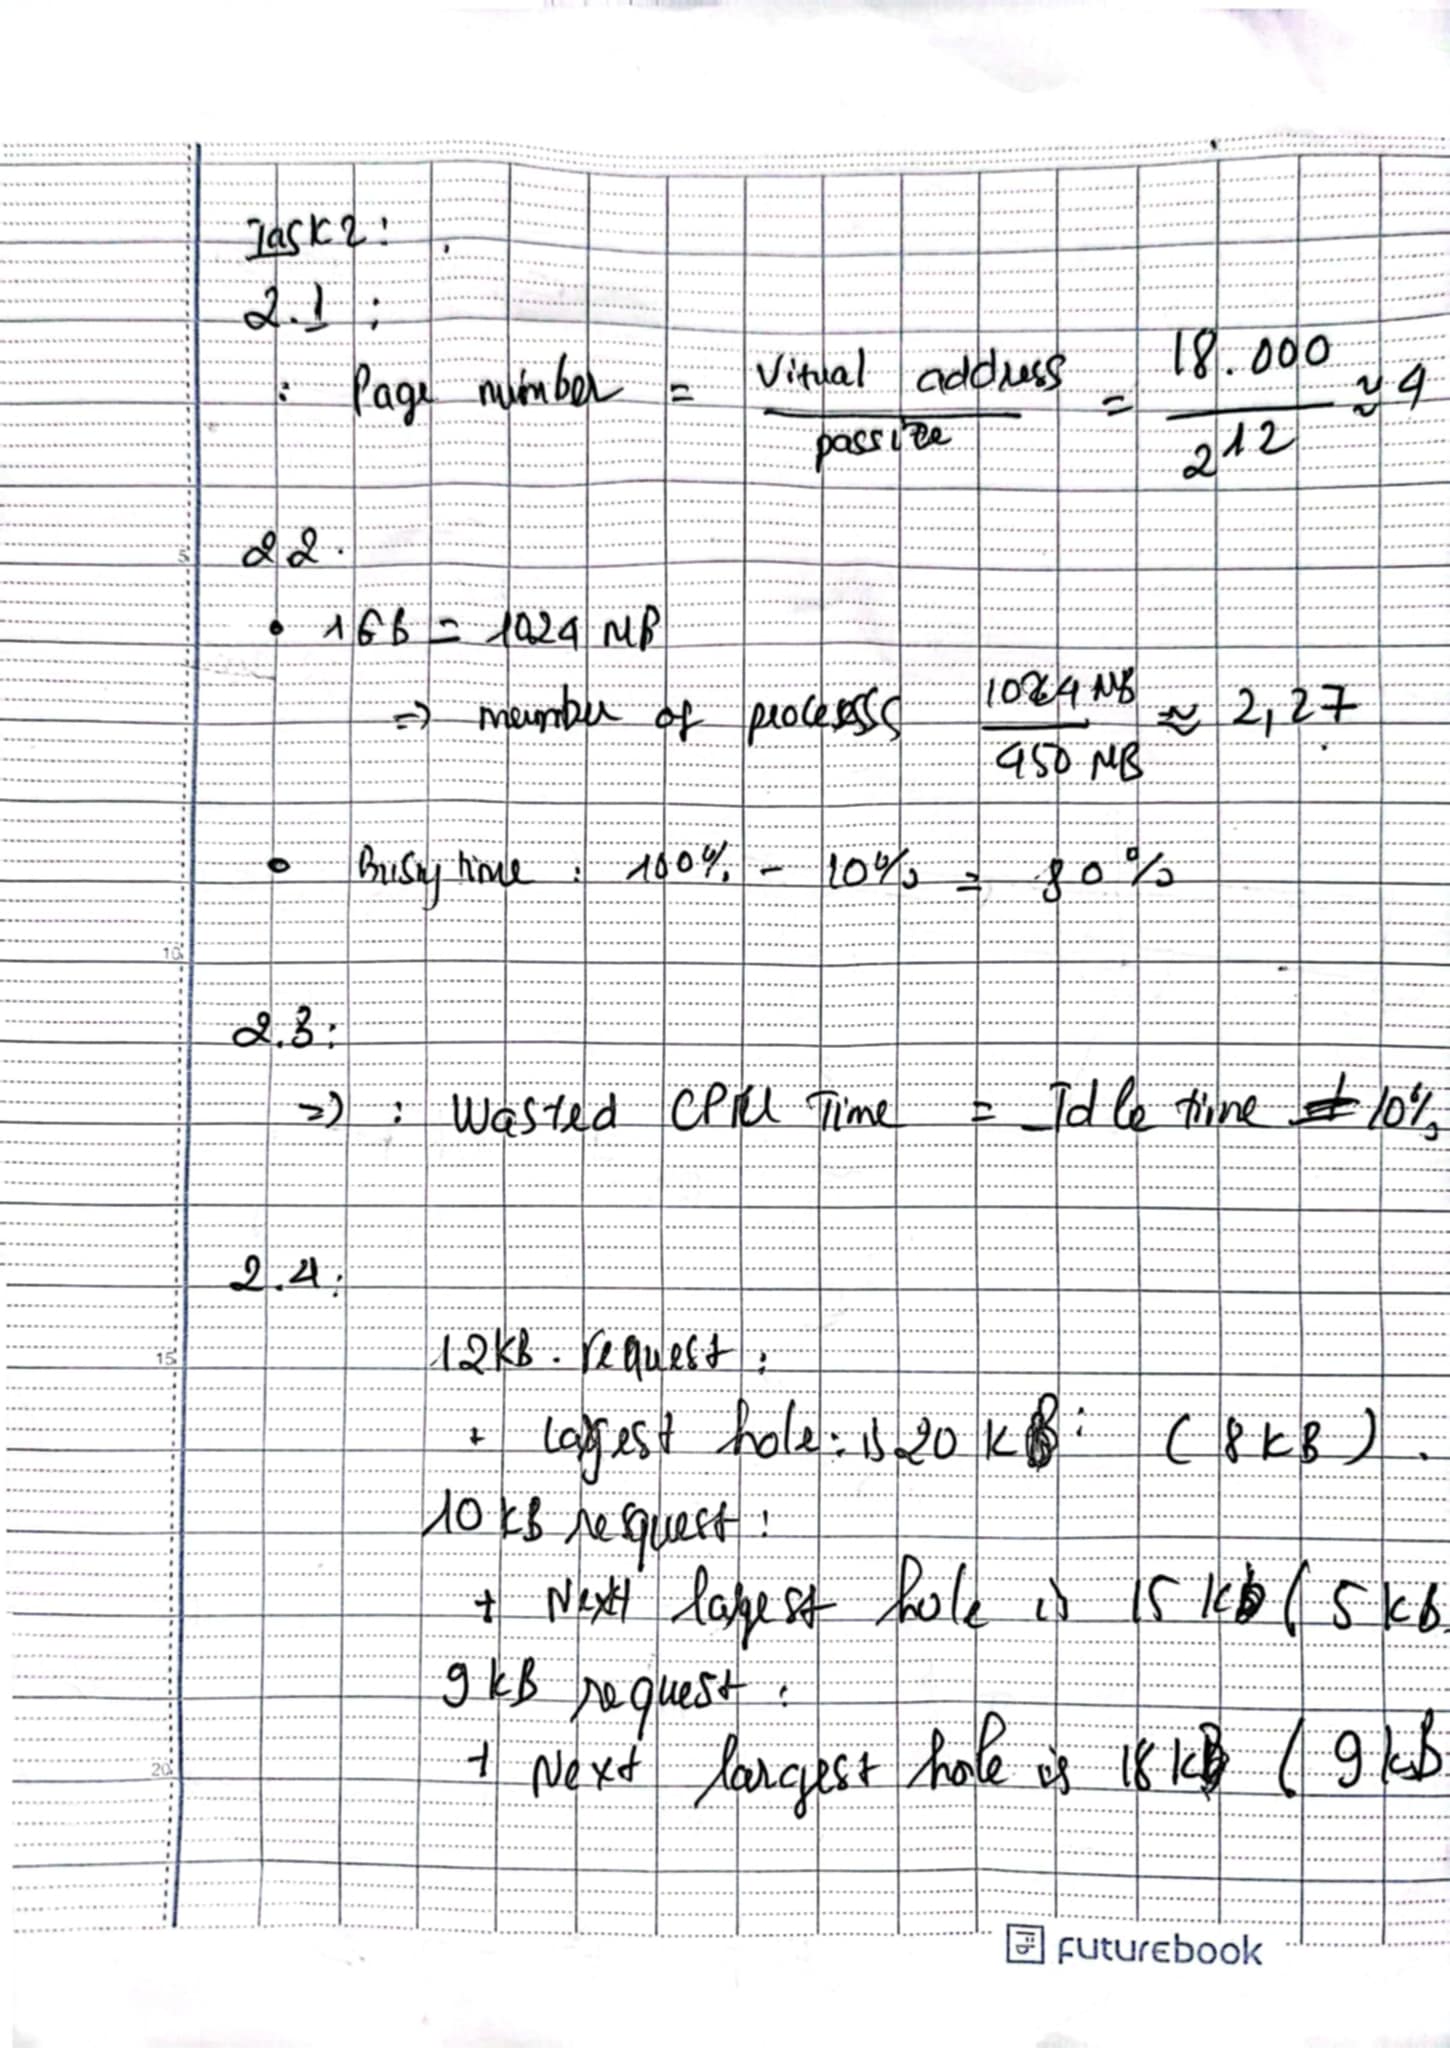 Task 2:
2.1 :
: Page number = Vitual address / passize = 18.000 / 2^12 ≈ 4
5
2 2.
• 1GB = 1024 MB
=> number of processs 1024 MB / 450 MB ≈ 2,27
• Busy time : 100% - 10% = 80%
10
2.3:
=> : Wasted CPU Time = Idle time = 10%
2.4:
12KB. request:
15
+ largest hole: is 20 KB: ( 8KB ) .
10 KB resquest:
+ Next largest hole is 15 kb ( 5 kb
9 KB request:
+ Next largest hole is 18 kB ( 9 kB
20
FUTUREBOOK